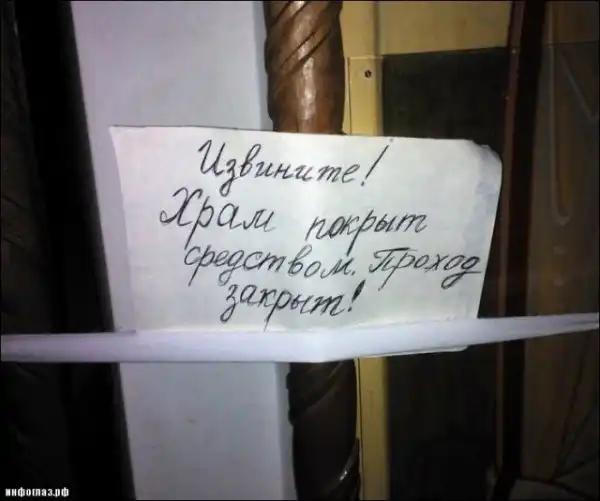 Извините!
Храм покрыт
средством. Проход
закрыт!
инфоглаз.рф